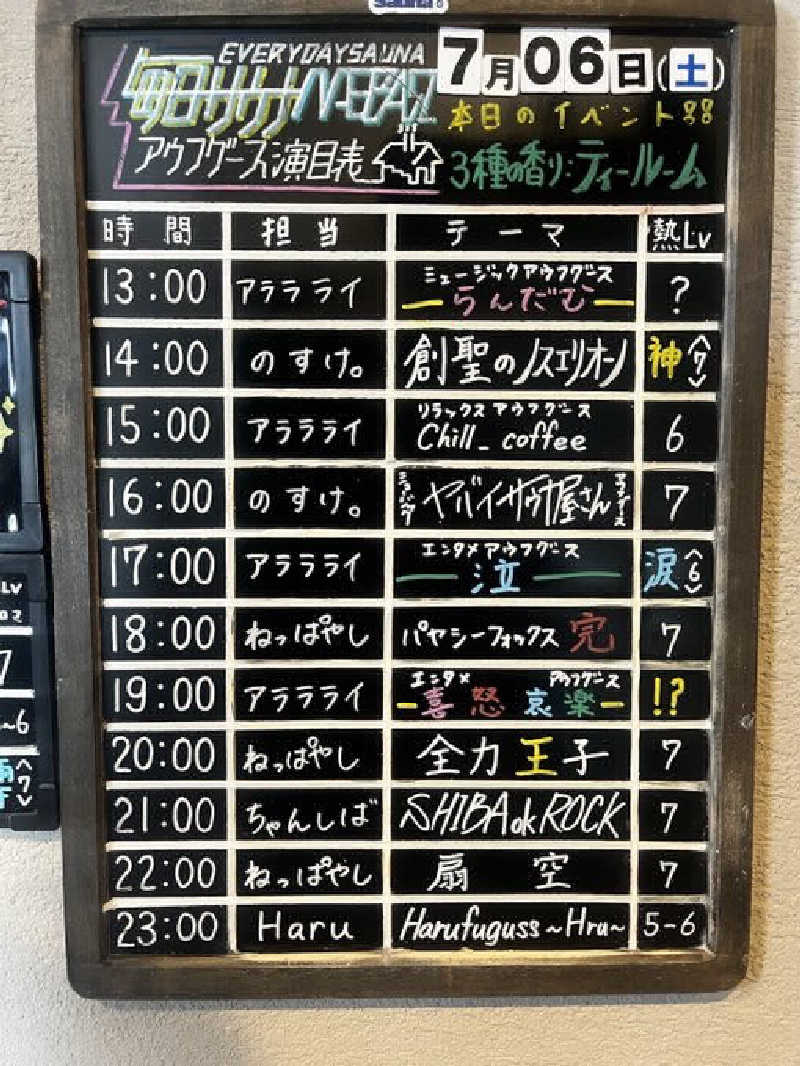 EVERYDAYSAUNA
毎日サウナ MAEBASHI
7月06日(土)
本日のイベント
アウフグース演目表
3種の香り:ティールーム
時間 担当 テーマ 熱Lv
13:00 アララライ ミュージックアウフグース ーらんだむー ?
14:00 のすけ。 創聖のノスエリオン 神〈7〉
15:00 アララライ リラックスアウフグース Chill_coffee 6
16:00 のすけ。 ヤバイサウナ屋さん 7
17:00 アララライ エンタメアウフグース ー泣ー 涙〈6〉
18:00 ねっぱやし パヤシーフォックス完 7
19:00 アララライ エンタメアウフグース ー喜怒哀楽ー !?
20:00 ねっぱやし 全力王子 7
21:00 ちゃんしば SHIBA ok ROCK 7
22:00 ねっぱやし 扇空 7
23:00 Haru Harufuguss~Hru~ 5-6
Lv
7
~6
〈7〉